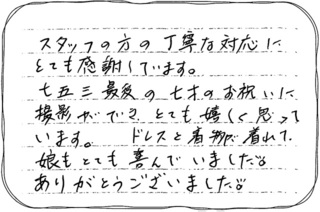 スタッフの方の丁寧な対応に
とても感謝しています。
七五三最後の七才のお祝いに
撮影ができ、とても嬉しく思って
います。 ドレスと着物が着れて、
娘もとても喜んでいました。
ありがとうございました。